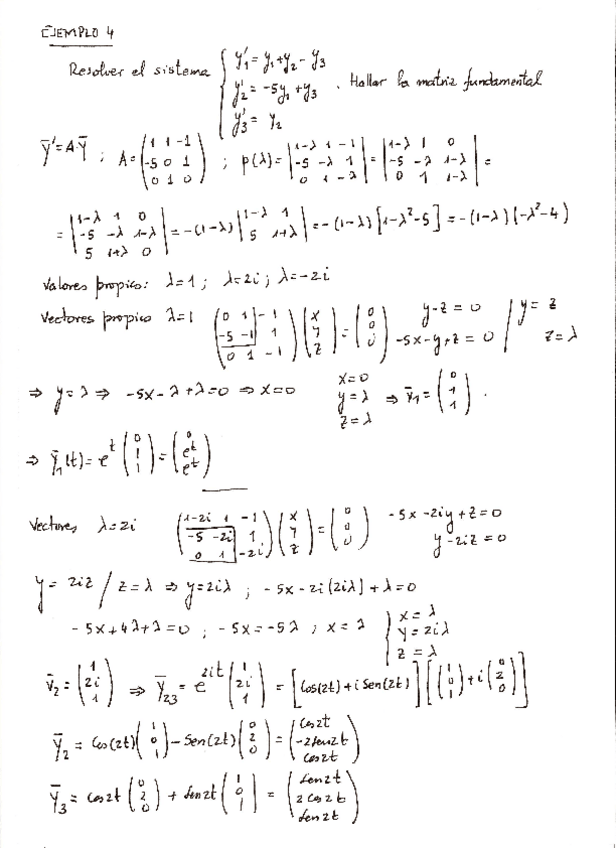 EJEMPLO 4
Resolver el sistema { y₁' = y₁ + y₂ - y₃
y₂' = -5y₁ + y₃ . Hallar la matriz fundamental
y₃' = y₂
Ȳ' = A·Ȳ ; A = (1 1 -1 / -5 0 1 / 0 1 0) ; p(λ) = |1-λ 1 -1 / -5 -λ 1 / 0 1 -λ| = |1-λ 1 0 / -5 -λ 1-λ / 0 1 1-λ| =
= |1-λ 1 0 / -5 -λ 1-λ / 5 1+λ 0| = -(1-λ) |1-λ 1 / 5 1+λ| = -(1-λ)[1-λ²-5] = -(1-λ)(-λ²-4)
Valores propios: λ=1 ; λ=2i ; λ=-2i
Vectores propios λ=1 (0 1 -1 / -5 -1 1 / 0 1 -1) (x / y / z) = (0 / 0 / 0) y-z = 0 / y = z
-5x-y+z = 0 z = λ
⇒ y = λ ⇒ -5x - λ + λ = 0 ⇒ x = 0 x=0 y=λ z=λ ⇒ v̄₁ = (0 / 1 / 1) .
⇒ Ȳ₁(t) = e^t (0 / 1 / 1) = (0 / e^t / e^t)
Vectores λ=2i (1-2i 1 -1 / -5 -2i 1 / 0 1 -2i) (x / y / z) = (0 / 0 / 0) -5x -2iy + z = 0
y - 2iz = 0
y = 2iz / z = λ ⇒ y = 2iλ ; -5x - 2i(2iλ) + λ = 0
-5x + 4λ + λ = 0 ; -5x = -5λ ; x = λ { x = λ
y = 2iλ
z = λ
v̄₂ = (1 / 2i / 1) ⇒ Ȳ₂₃ = e^2it (1 / 2i / 1) = [Cos(2t) + i Sen(2t)] [(1 / 0 / 1) + i (0 / 2 / 0)]
Ȳ₂ = Cos(2t) (1 / 0 / 1) - Sen(2t) (0 / 2 / 0) = (Cos2t / -2Sen2t / Cos2t)
Ȳ₃ = Cos2t (0 / 2 / 0) + Sen2t (1 / 0 / 1) = (Sen2t / 2Cos2t / Sen2t)